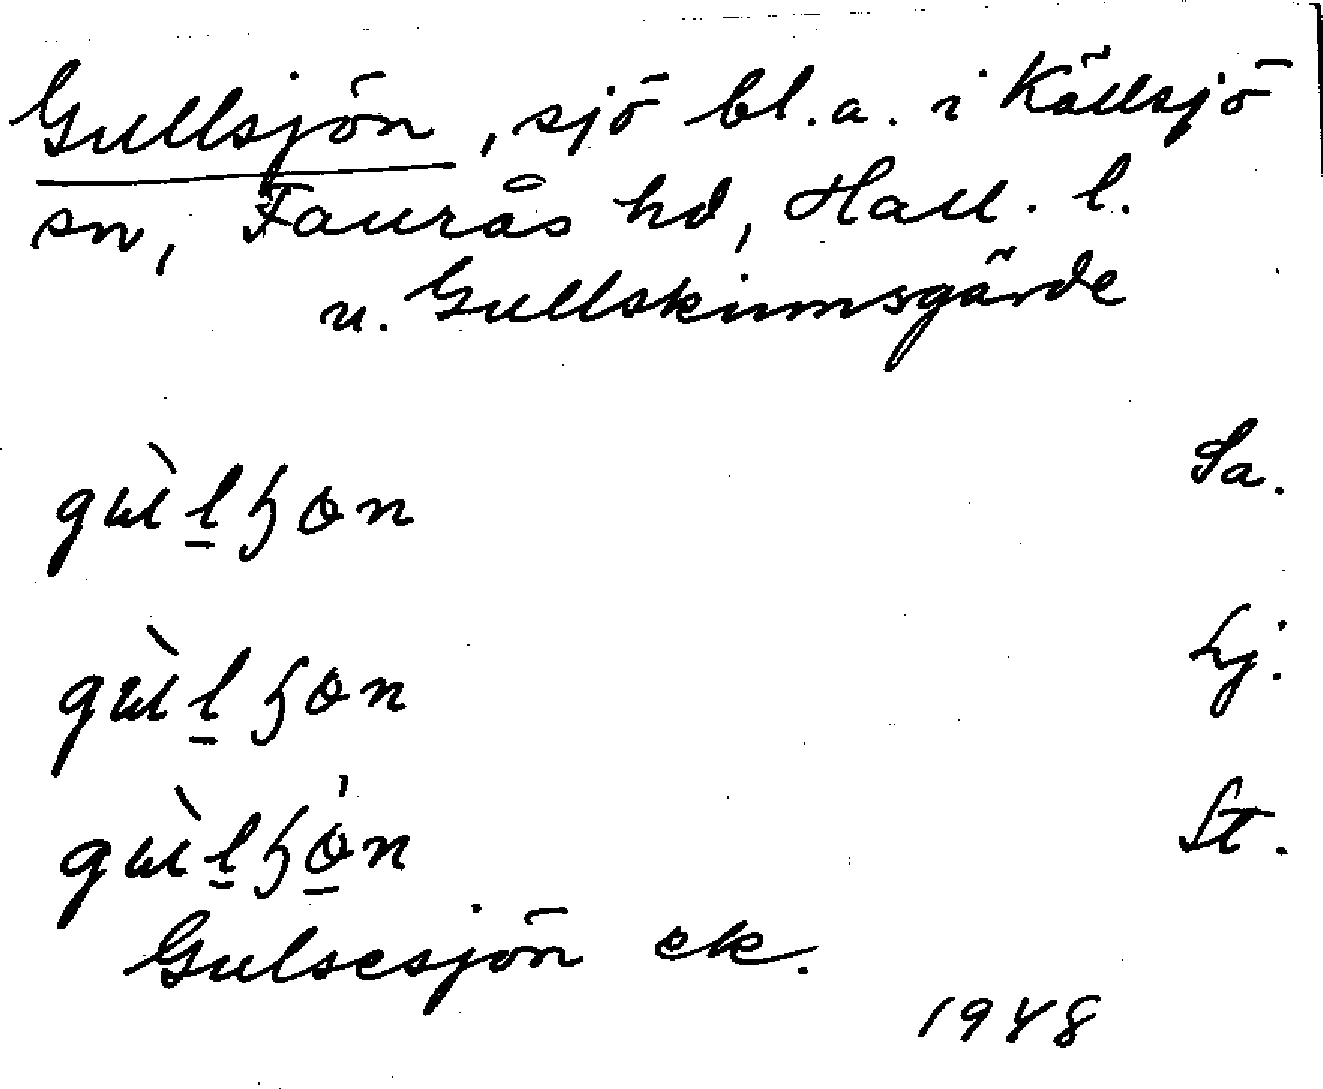 Gullsjön, sjö bl.a. i Källsjö
sn, Faurås hd, Hall. l.
u. Gullskimsgärde
gɯ̀lɧɵn Sa.
gɯ̀lɧɵn Lj.
gɯ̀lɧɵ̀n St.
Gulsesjön ek.
1948